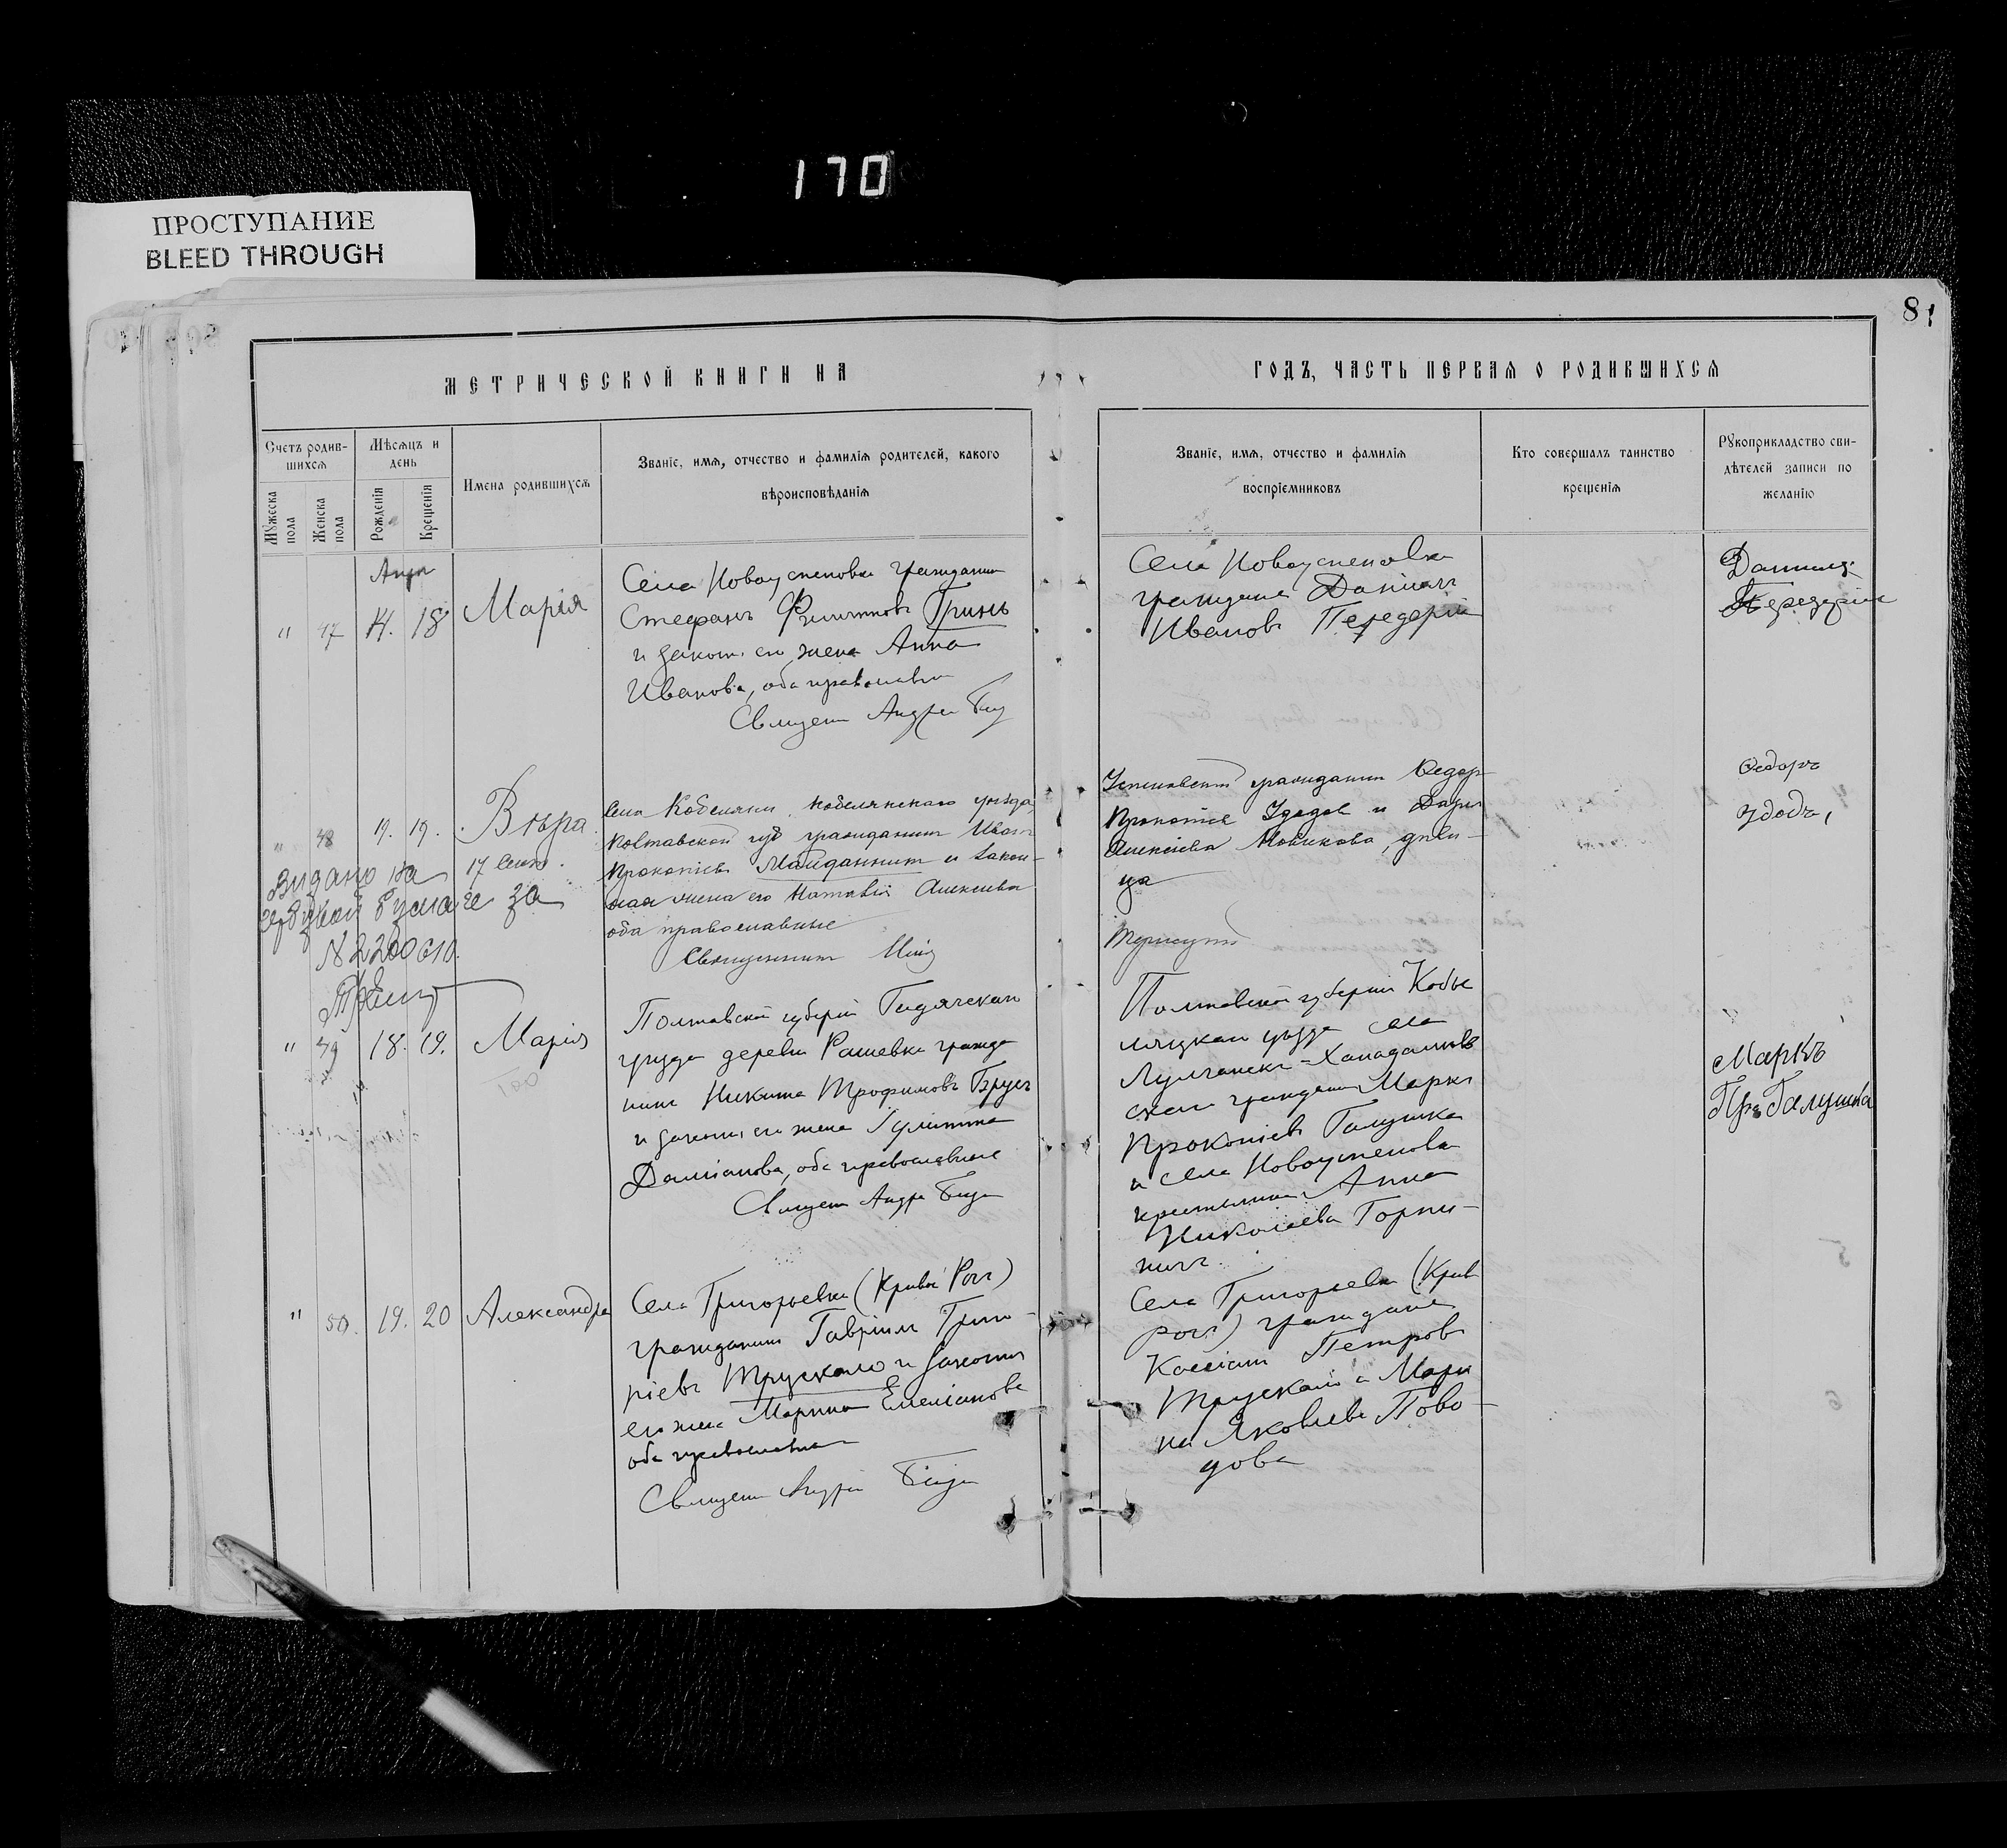 170
ПРОСТУПАНИЕ
BLEED THROUGH
81
МЕТРИЧЕСКОЙ КНИГИ НА
ГОДЪ, ЧАСТЬ ПЕРВАЯ О РОДИВШИХСЯ
Счетъ родив-
шихся
Мѣсяцъ и
день
Мужеска
пола
Женска
пола
Рожденія
Крещенія
Имена родившихся
Званіе, имя, отчество и фамилія родителей, какого
вѣроисповѣданія
Званіе, имя, отчество и фамилія
воспріемниковъ
Кто совершалъ таинство
крещенія
Рукоприкладство сви-
дѣтелей записи по
желанію
" 47 14. 18 Марія
Села Новоуспеновки гражданин
Стефанъ Гринь
и закон. его жена Анна
Иванова, оба православн
Священ Андрей
Села Новоуспеновки
граждане Даніилъ
Ивановъ Передерій
Даниилъ
Передерій
" 48 19. 19. Вѣра
17 сент.
Видано на
бумаге за
N 2200610
Села Кобеляки, Кобелякскаго уѣзда,
Полтавской губ гражданинъ Иванъ
Прокопіевъ Майданникъ и закон-
ная жена его Наталія Алексѣева
оба православные
Священникъ
гражданинъ Федоръ
Прокопіев Удодов и Дарія
Алексіева Новикова, дѣви-
ца
Федоръ
Удодъ,
" 49 18. 19. Марія
Полтавской губерніи Гадячскаго
уезда деревни Рашевки гражда
нинъ Никита Трофимовъ Брусъ
и законн. его жена Гулиттта
Даміанова, оба православные
Священ Андрей
Полтавской губерніи Кобе
ляцкаго уезда села
гражданин Маркъ
Прокопіевъ Галушка
и села Новоуспеновки
Анна
Николаева Горпи-
нич
Маркъ
Пр. Галушка
" 50. 19. 20 Александра
Села Григорьевки (Кривой Рогъ)
гражданинъ Гавріилъ Григо-
ріевъ Трускало и законная
его жена Марина Емеліанова
оба православные
Священ Андрей
Села Григорьевки (Крив
Рогъ) граждане
Кассіанъ Петровъ
Трускало и Мари
на Яковлева Пово-
дова